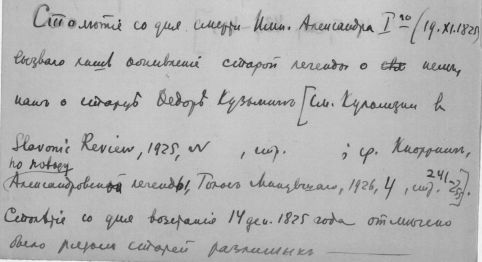 Столѣтіе со дня смерти Имп. Александра I го (19.XI.1825)
вызвало оживленіе старой легенды о немъ,
какъ о старцѣ Ѳедорѣ Кузьмичѣ [см. Куломзин в
Slavonic Review, 1925, № , стр. ; ср. Кнорринг,
по поводу
Александровской легенды, Голос Минувшаго, 1926, 4, стр. 241-
Столѣтіе со дня возстанія 14 дек. 1825 года отмѣчено
было рядом статей различных